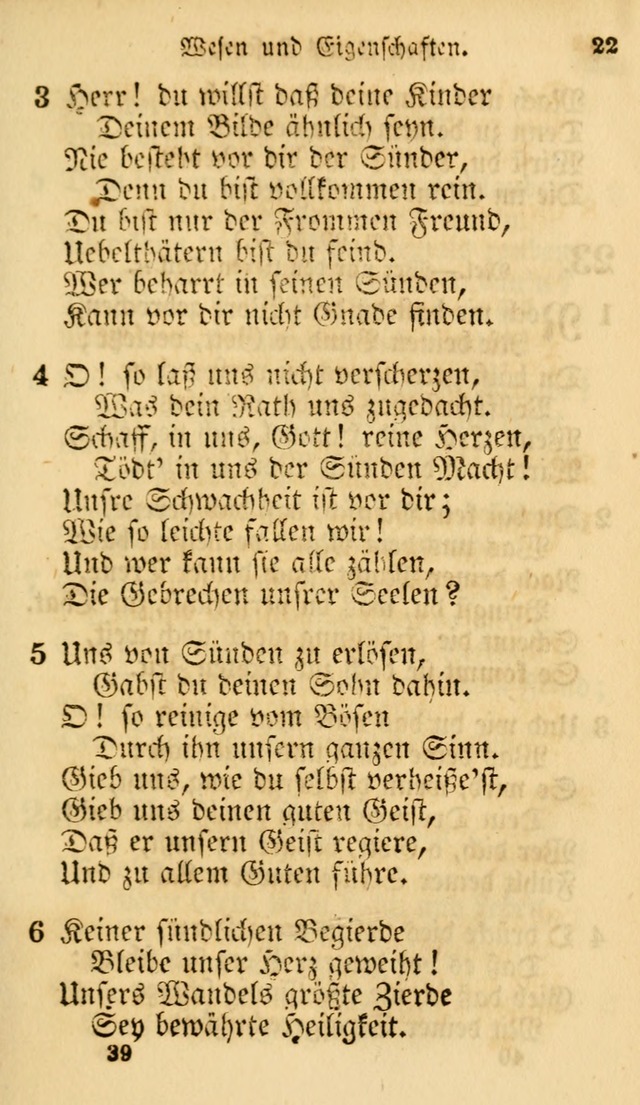 Wesen und Eigenschaften. 22
3 Herr! du willst daß deine Kinder
Deinem Bilde ähnlich seyn.
Nie besteht vor dir der Sünder,
Denn du bist vollkommen rein.
Du bist nur der Frommen Freund,
Uebelthätern bist du feind.
Wer beharrt in seinen Sünden,
Kann vor dir nicht Gnade finden.
4 O! so laß uns nicht verscherzen,
Was dein Rath uns zugedacht.
Schaff, in uns, Gott! reine Herzen,
Tödt' in uns der Sünden Macht!
Unsre Schwachheit ist vor dir;
Wie so leichte fallen wir!
Und wer kann sie alle zählen,
Die Gebrechen unsrer Seelen?
5 Uns von Sünden zu erlösen,
Gabst du deinen Sohn dahin.
O! so reinige vom Bösen
Durch ihn unsern ganzen Sinn.
Gieb uns, wie du selbst verheiße'st,
Gieb uns deinen guten Geist,
Daß er unsern Geist regiere,
Und zu allem Guten führe.
6 Keiner sündlichen Begierde
Bleibe unser Herz geweiht!
Unsers Wandels größte Zierde
Sey bewährte Heiligkeit.
39